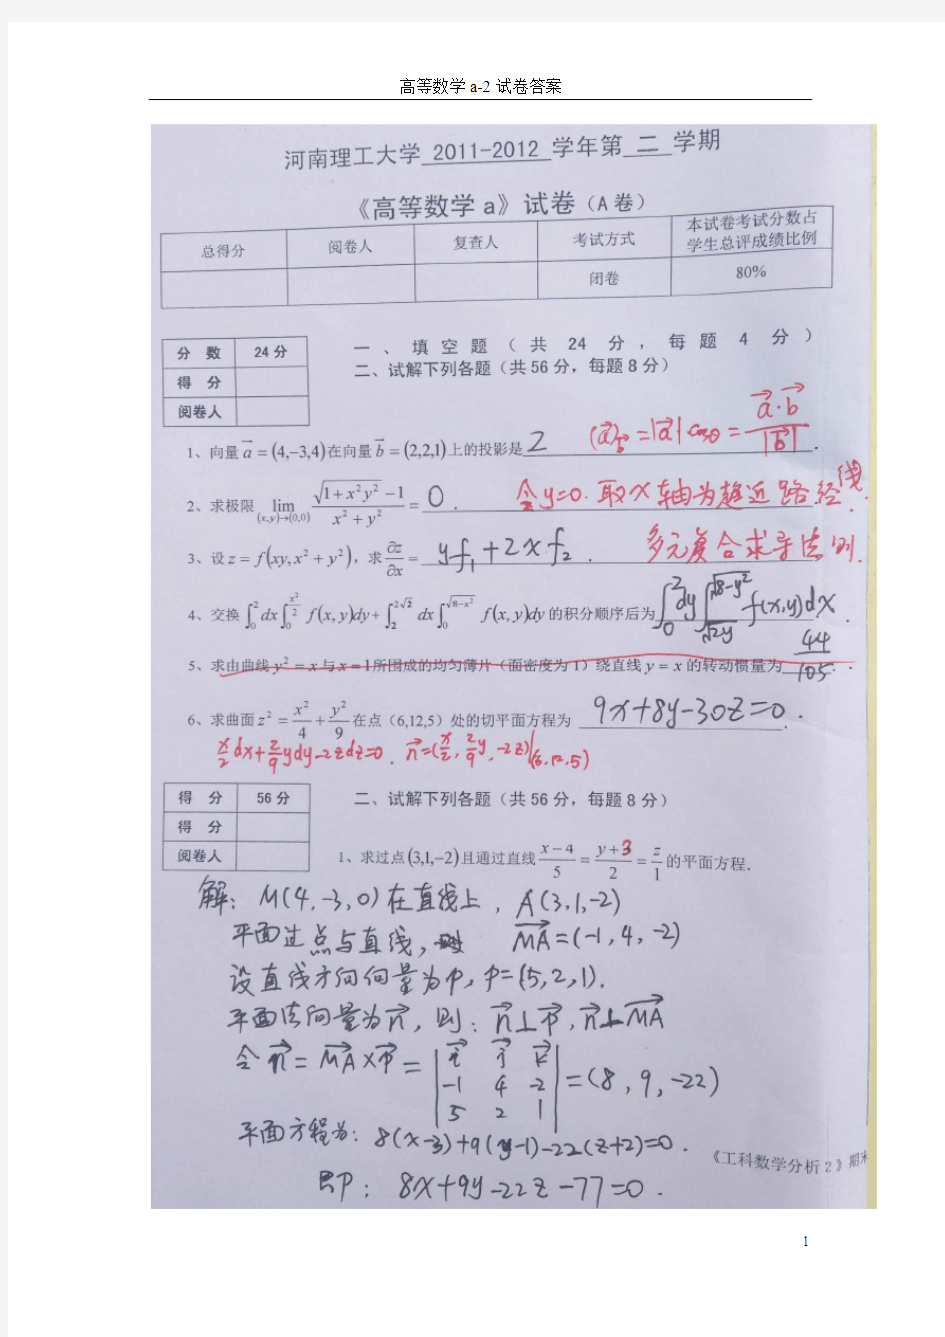 高等数学 a-2 试卷答案
河南理工大学 2011-2012 学年第 二 学期
《高等数学 a》试卷（A 卷）
总得分 阅卷人 复查人 考试方式 本试卷考试分数占学生总评成绩比例
闭卷 80%
分 数 24 分
得 分
阅卷人
一 、 填 空 题 （ 共 24 分 ， 每 题 4 分 ）
二、试解下列各题（共 56 分，每题 8 分）
1、向量 \vec{a} = (4,−3,4) 在向量 \vec{b} = (2,2,1) 上的投影是 2 . (\vec{a})_{\vec{b}} = |\vec{a}| cosθ = \frac{\vec{a}·\vec{b}}{|\vec{b}|}
2、求极限 \lim_{(x,y)→(0,0)} \frac{\sqrt{1+x^2y^2}−1}{x^2+y^2} = 0 . 令y=0. 取x轴为趋近路经线.
3、设 z = f(xy, x^2 + y^2)，求 \frac{∂z}{∂x} = yf_1+2xf_2 . 多元复合求导法则.
4、交换 \int_0^2 dx \int_0^{\frac{x^2}{2}} f(x,y)dy + \int_2^{2\sqrt{2}} dx \int_0^{\sqrt{8−x^2}} f(x,y)dy 的积分顺序后为 \int_0^2 dy \int_{\sqrt{2y}}^{\sqrt{8−y^2}} f(x,y)dx .
5、求由曲线 y^2 = x 与 x = 1 所围成的均匀薄片（面密度为 1）绕直线 y = x 的转动惯量为 \frac{44}{105} .
6、求曲面 z^2 = \frac{x^2}{4} + \frac{y^2}{9} 在点 (6,12,5) 处的切平面方程为 9x+8y−30z=0 .
\frac{x}{2}dx+\frac{2}{9}ydy−2zdz=0. \vec{n}=(\frac{x}{2}, \frac{2}{9}y, −2z)|(6,12,5)
得 分 56 分
得 分
阅卷人
二、试解下列各题（共 56 分，每题 8 分）
1、求过点 (3,1,−2) 且通过直线 \frac{x−4}{5} = \frac{y+3}{2} = \frac{z}{1} 的平面方程.
解: M(4,−3,0)在直线上, A(3,1,−2)
平面过点与直线, \vec{MA}=(−1,4,−2)
设直线方向向量为P, P=(5,2,1).
平面法向量为\vec{n}, 则: \vec{n}⊥\vec{P}, \vec{n}⊥\vec{MA}
令\vec{n}=\vec{MA}×\vec{P}= \begin{vmatrix} \vec{i} & \vec{j} & \vec{k} \\ −1 & 4 & −2 \\ 5 & 2 & 1 \end{vmatrix} =(8,9,−22)
平面方程为: 8(x−3)+9(y−1)−22(z+2)=0.
《工科数学分析 2》期末
即: 8x+9y−22z−77=0.
1